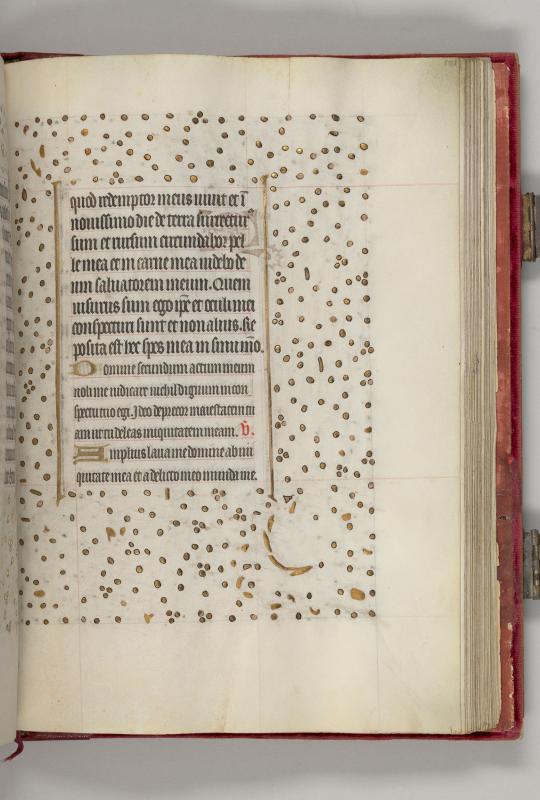 quod redemptor meus uiuit et ī
nouissimo die de terra surrectur᷒
sum et rursum circundabor pel
le mea et in carne mea uidebo de
um saluatorem meum. Quem
uisurus sum ego ip̄e et oculi mei
conspecturi sunt et non alius. Re
posita est hec spes mea in sinu meo.
Domine secundum actum meum
noli me iudicare nichil dignum in con
spectu tuo egi. Ideo deprecor maiestatem tu
am ut tu deleas iniquitatem meam. ℣.
Amplius laua me domine ab ini
quitate mea et a delicto meo munda me.